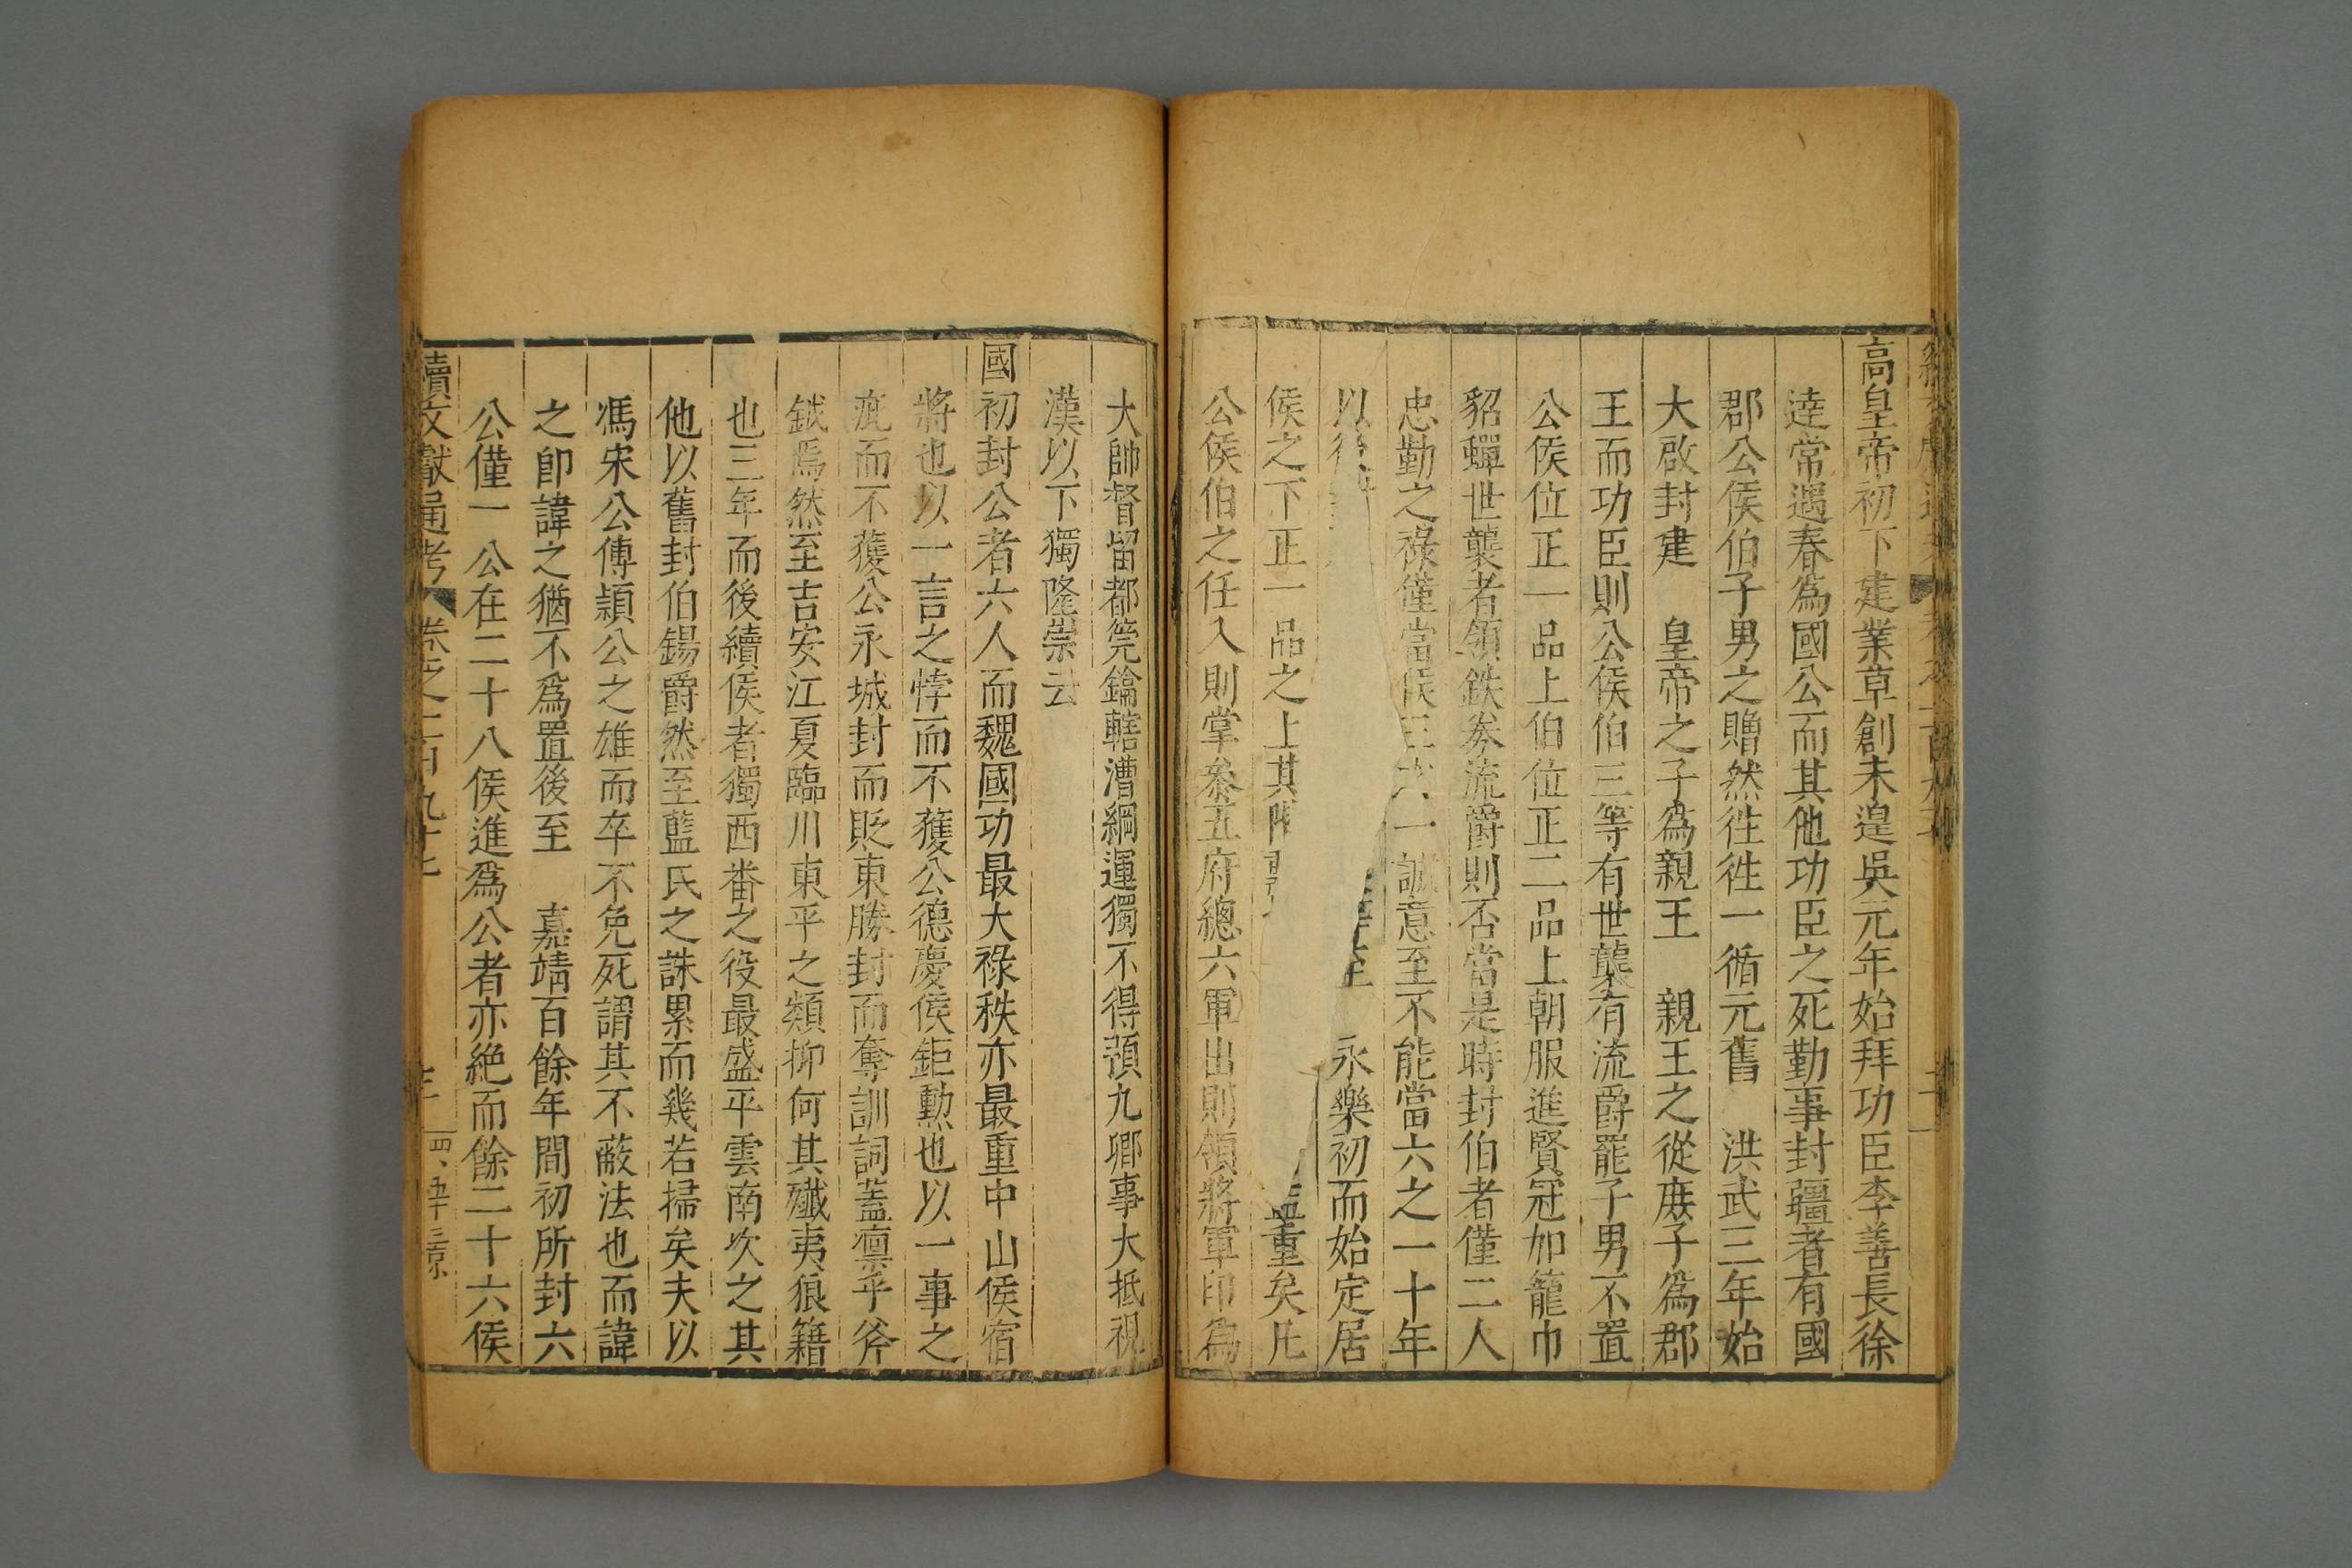 高皇帝初下建業草創未遑吳元年始拜功臣李善長徐
達常遇春為國公而其他功臣之死勤事封疆者有國
郡公侯伯子男之贈然徃徃一循元舊 洪武三年始
大啟封建 皇帝之子為親王 親王之從庶子為郡
王而功臣則公侯伯三等有世襲有流爵罷子男不置
公侯位正一品上伯位正二品上朝服進賢冠加籠巾
貂蟬世襲者領鉄券流爵則否當是時封伯者僅二人
忠勤之祿僅當侯三六一誠意至不能當六之一十年
以後 永樂初而始定居
侯之下正一品之上其 重矣凡
公侯伯之任入則掌叅五府總六軍出則領將軍印為
大帥督留都筦鑰轄漕綱運獨不得預九卿事大抵視
漢以下獨隆崇云
國初封公者六人而魏國功最大祿秩亦最重中山侯宿
將也以一言之悖而不獲公德慶侯鉅勲也以一事之
疵而不獲公永城封而貶東勝封而奪訓詞蓋凛乎斧
鉞焉然至吉安江夏臨川東平之類抑何其殲夷狼籍
也三年而後續侯者獨西番之役最盛平雲南次之其
他以舊封伯鍚爵然至藍氏之誅累而幾若掃矣夫以
馮宋公傅頴公之雄而卒不免死謂其不蔽法也而諱
之卽諱之猶不為置後至 嘉靖百餘年間初所封六
公僅一公在二十八侯進為公者亦絶而餘二十六侯
續文獻通考 卷之二百九十七 四五十三